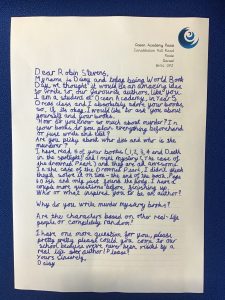 Ocean Academy Poole
Constitution Hill Road
Poole
Dorset
BH14 0PZ
Dear Robin Stevens,
My name is Daisy and today being World Book
Day, we thought it would be an amazing idea
to write to our favourite authors, like you.
I am a student at Ocean Academy, in Year 5,
Orcas class and I absolutely adore your books
so, if its okay I would like to ask you about
yourself and your books.
How do you know so much about murder? In
your books do you plan everything beforehand
or just write and like?
Are you picky about who dies and who is the
murderer?
I have read 4 of your books (1, 2, 4 and Death
in the Spotlight) and 1 mini mystery (The case of
the drowned Pearl) and they are all awesome!
In the case of the Drowned Pearl, I didn't quite
finish, so
is a fish and only just found the body. I have a
couple more questions before finishing up.
Who or what inspired you to be an author?
Why do you write murder mystery books?
Are the characters based on other real-life
people or completely random?
I have one more question for you, please
pretty pretty please could you come to our
school because we've never been visited by a
real life star author! Please!
Yours Sincerely,
Daisy